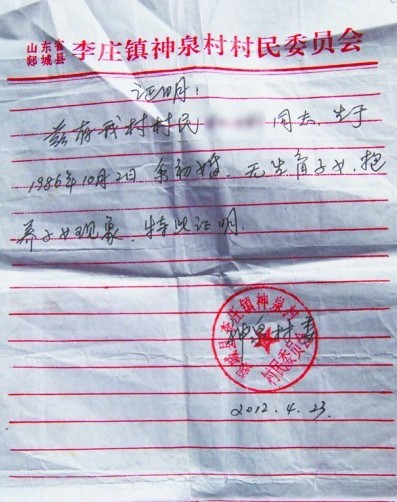 山东省郯城县 李庄镇神泉村村民委员会
证明:
兹有我村村民 同志,生于
1986年10月2日 系初婚,无生育子女,抱
养子女现象,特此证明.
郯城县李庄镇神泉村
村民委员会
神泉村委
2012.4.23.